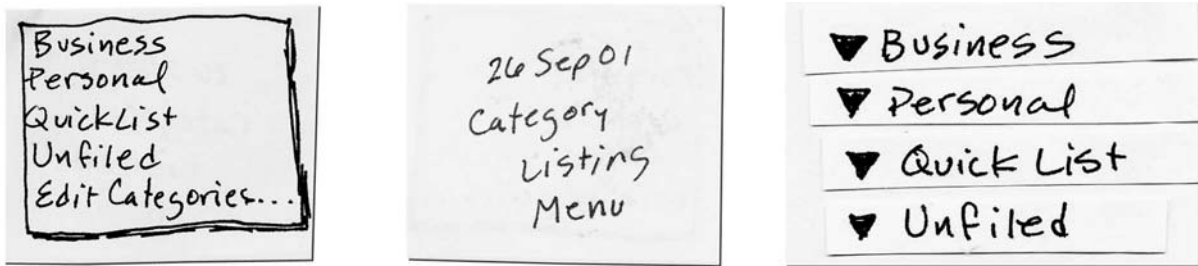 Business
Personal
QuickList
Unfiled
Edit Categories...
26 Sep 01
Category
Listing
Menu
▼ Business
▼ Personal
▼ Quick List
▼ Unfiled